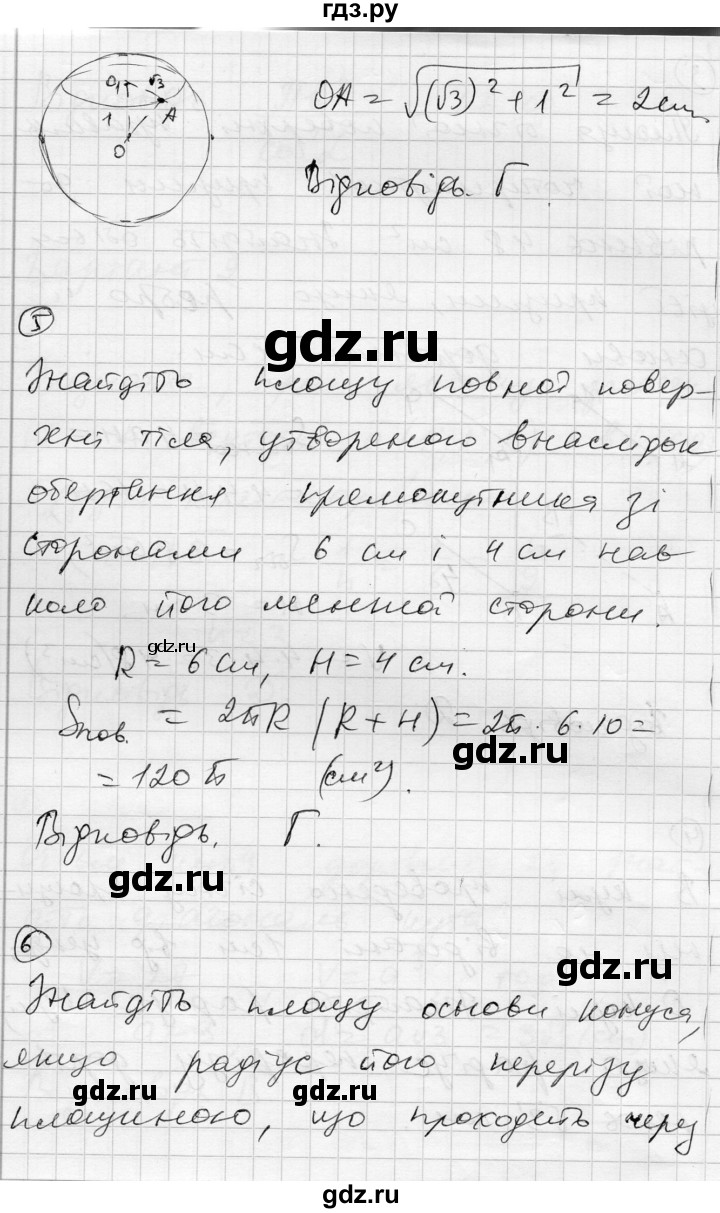 гдз.ру
O₁ √3
OA = √((√3)² + 1²) = 2см
1 A
O
Відповідь. Г.
5
gdz.ru
Знайдіть площу повної повер-
хні тіла, утвореного внаслідок
обертання прямокутника зі
сторонами 6 см і 4 см нав-
коло його меншої сторони.
gdz.ru
R = 6 см, H = 4 см.
Sпов. = 2πR (R + H) = 2π · 6 · 10 =
gdz.ru
= 120π (см²).
Відповідь. Г.
gdz.ru
6
gdz.ru
Знайдіть площу основи конуса,
якщо радіус його перерізу
gdz.ru gdz.ru
площиною, що проходить через
gdz.ru